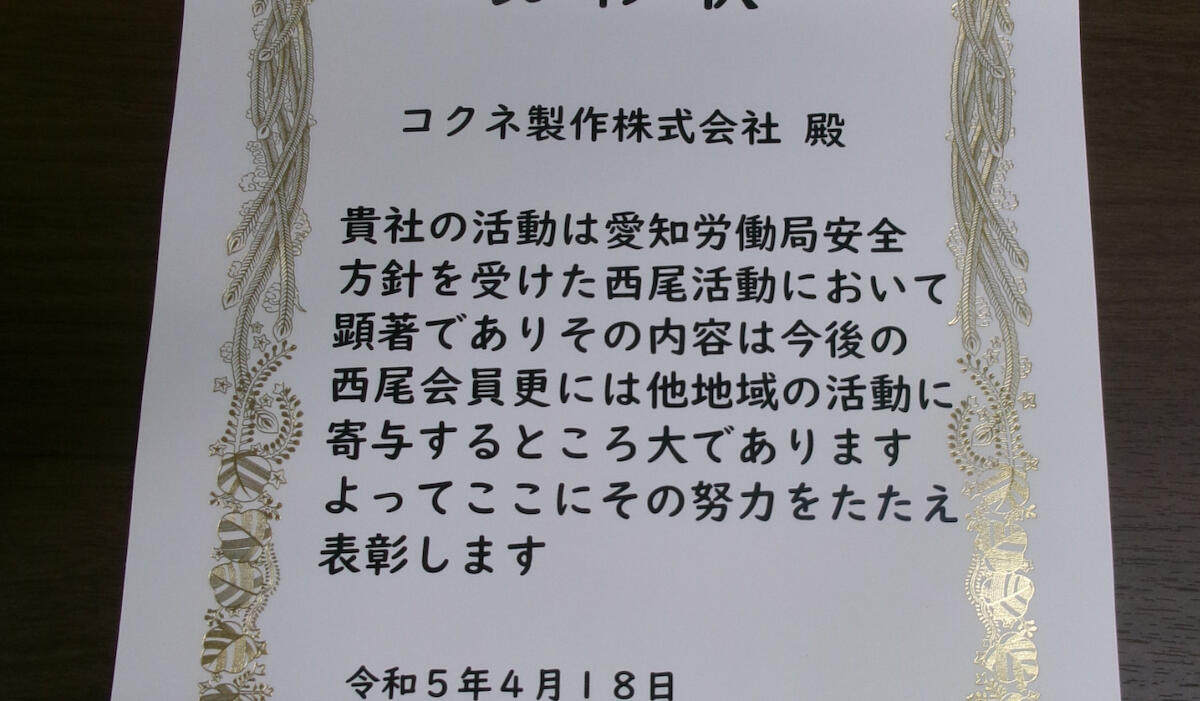 コクネ製作株式会社 殿
貴社の活動は愛知労働局安全
方針を受けた西尾活動において
顕著でありその内容は今後の
西尾会員更には他地域の活動に
寄与するところ大であります
よってここにその努力をたたえ
表彰します
令和5年4月18日